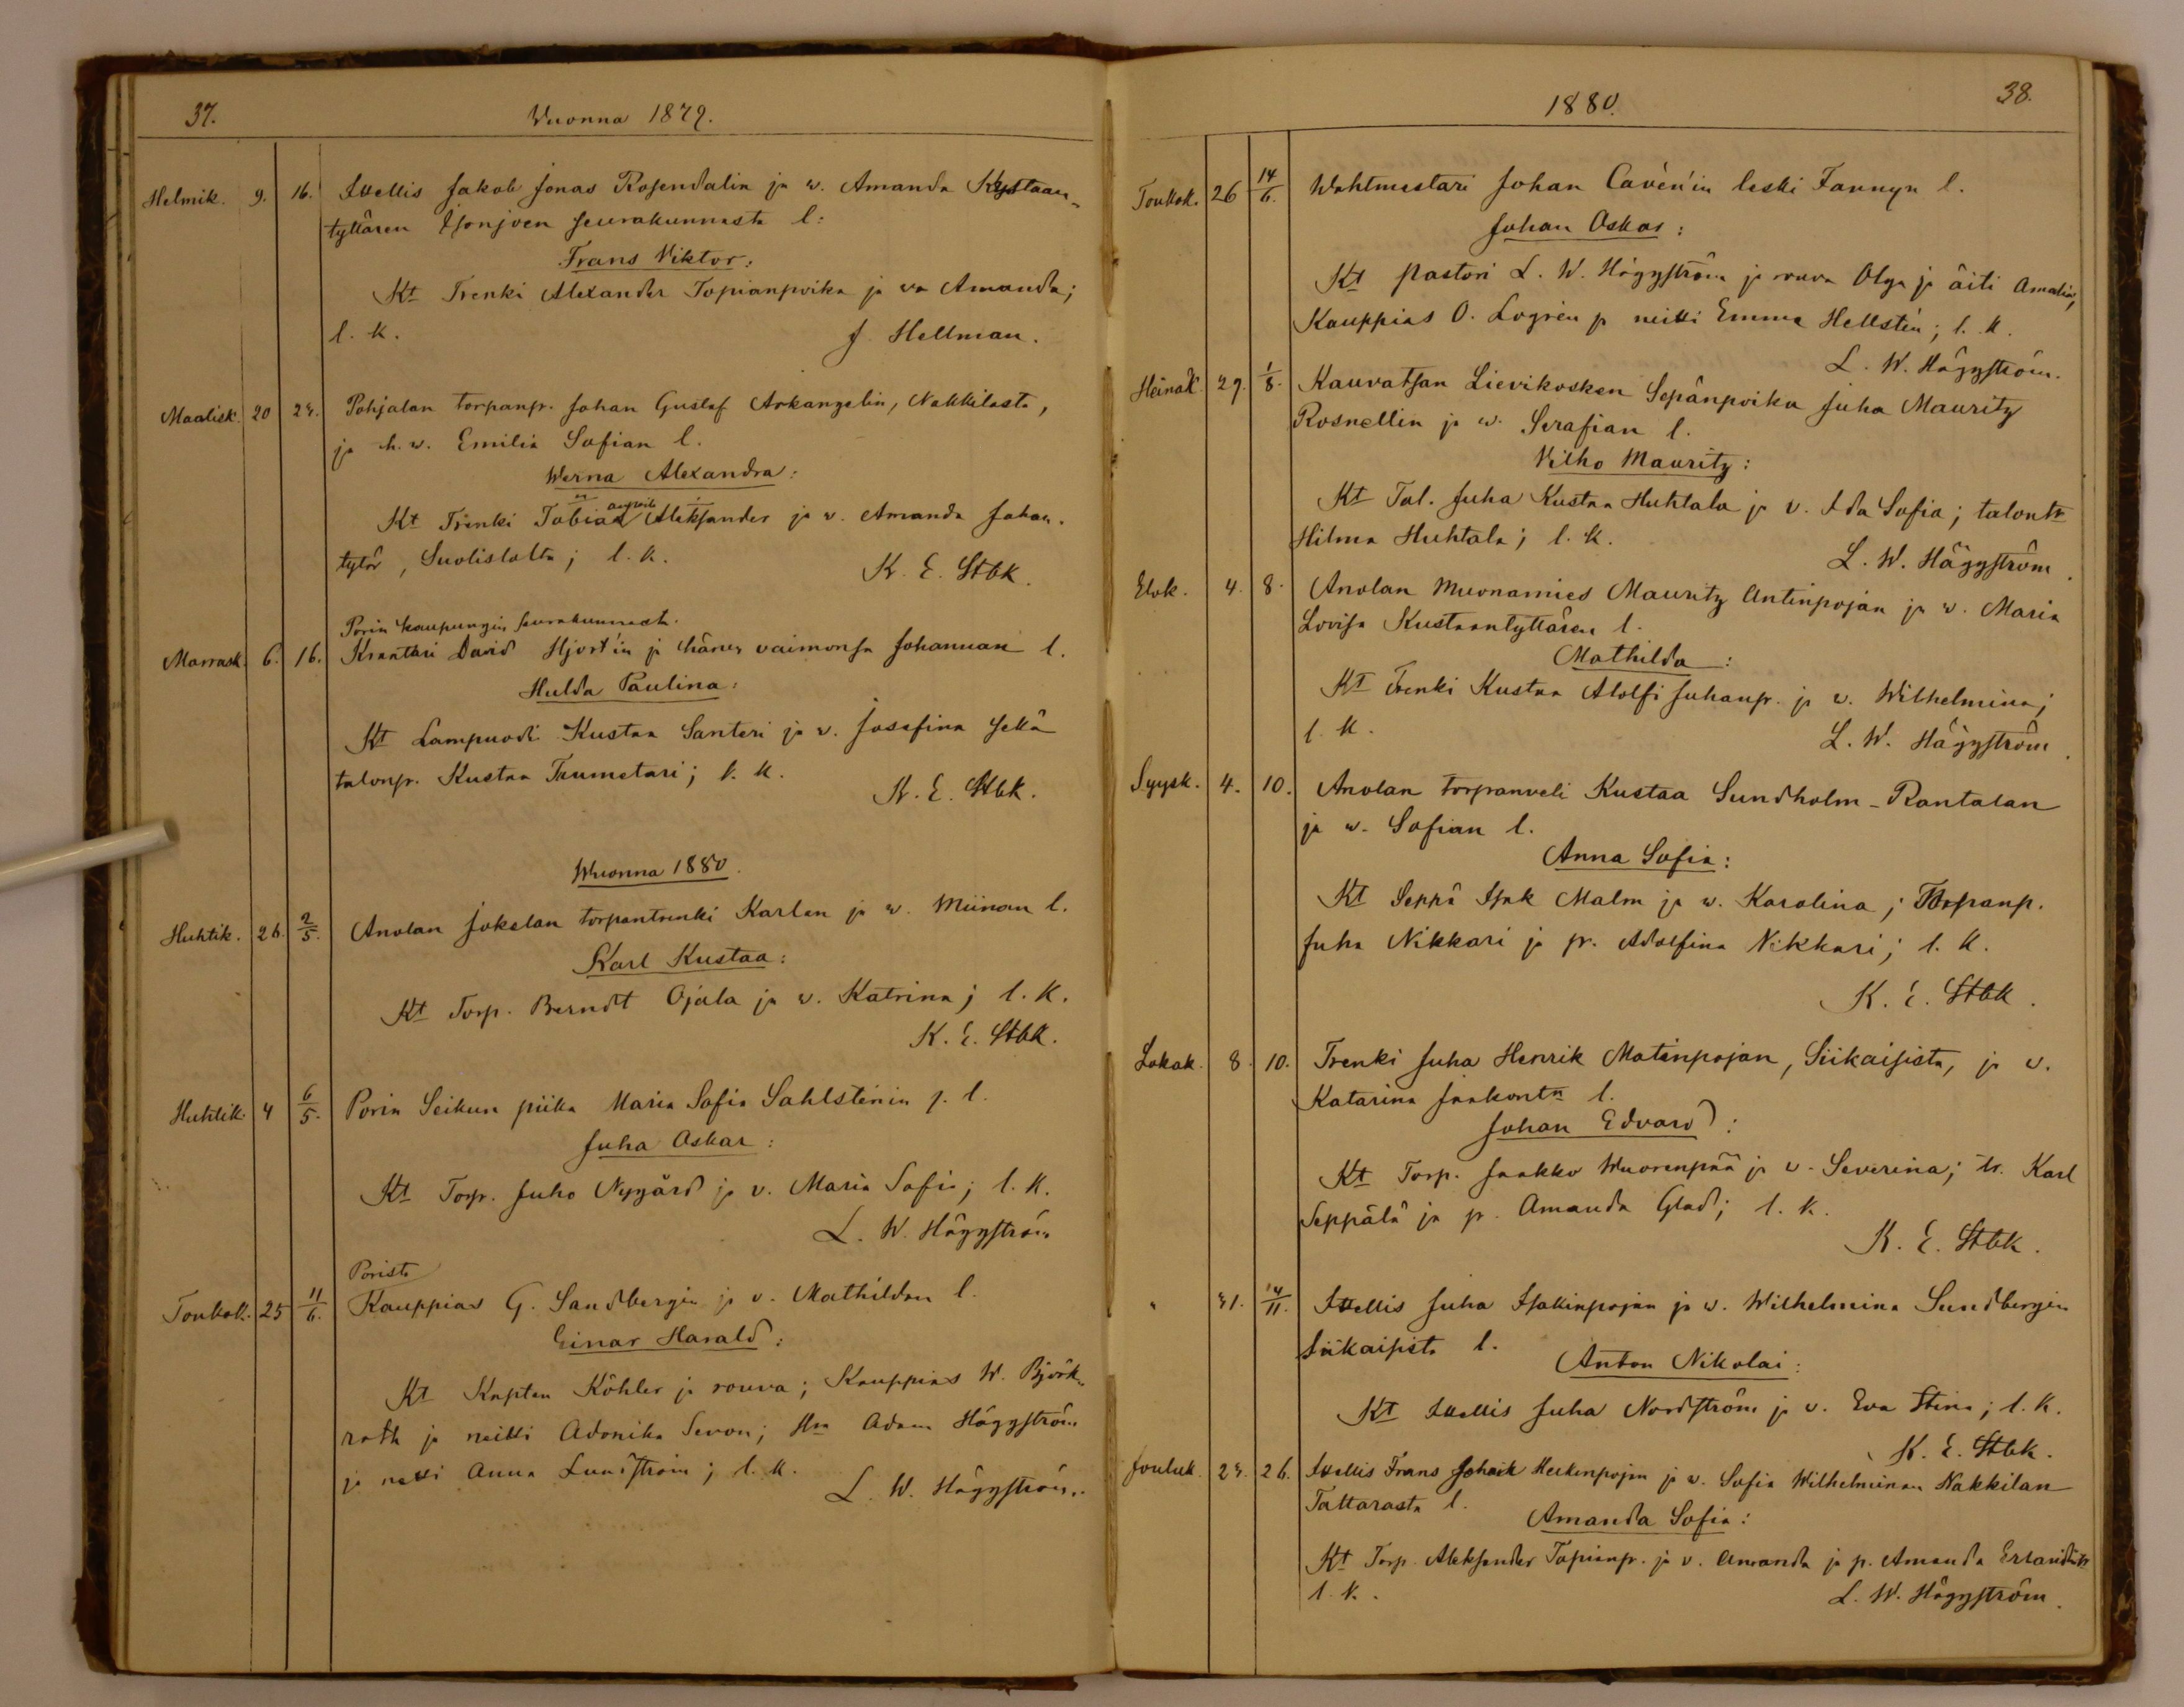 37.
Wuonna 1879.
Helmik. 9. 16. Itellis Jakob Jonas Rosendalin ja w. Amanda Kustaan-
tyttären Isonjoen seurakunnasta l:
Frans Viktor:
Kt Trenki Alexander Topianpoika ja va Amanda;
l. k. J. Hellman.
Maalisk. 20 Pohjalan torpanp. Johan Gustaf Arkangelin, Nakkilasta,
ja h. w. Emilia Sofian l.
Werna Alexandra:
Kt Trenki Tobias Aleksander ja w. Amanda Johan-
tytär, Suolistolta; l. k. K. E. Stbk.
Porin kaupungin seurakunnasta.
Marrask. 6. 16. Kraatari David Hjort'in ja hänen vaimonsa Johannan l.
Hulda Paulina:
Kt Lampuodi Kustaa Santeri ja w. Josefina sekä
talonp. Kustaa Tuumetari; l. k.
K. E. Stbk.
Wuonna 1880.
Huhtik. 26. 2/5. Anolan Jokelan torpantrenki Karlen ja w. Miinan l.
Karl Kustaa:
Kt Torp. Berndt Ojala ja w. Katrina; l. k.
K. E. Stbk.
Huhtik. 4 6/5. Porin Seikun piika Maria Sofia Sahlstenin p. l.
Juha Oskar:
Kt Torp. Juho Nygård ja v. Maria Sofia; l. k.
L. W. Häggström
Porista
Toukok. 25 11/6. Kauppias G. Sandbergin ja v. Mathildan l.
Einar Harald:
Kt Kapten Köhler ja rouva; Kauppias W. Björk-
roth ja neitti Adonika Sevon; Hra Adam Häggström
ja neiti Anna Lundström; l. k.
L. W. Häggström.
1880.
38.
Toukok. 26 14/6. Wahtmestari Johan Cavèn'in leski Fannyn l.
Johan Oskar:
Kt Pastori L. W. Häggström ja rouva Olga ja äiti Amalia,
Kauppias O. Logrén ja neitti Emma Hellstén; l. k.
L. W. Häggström.
Heinäk. 29. 1/8. Kauvatsan Lievikosken Sepänpoika Juha Mauritz
Rosnellin ja w. Serafian l.
Vilho Mauritz:
Kt Tal. Juha Kustaa Huhtala ja v. Ida Sofia; talontr
Hilma Huhtala; l. k.
L. W. Häggström.
Elok. 4. 8. Anolan Muonamies Mauritz Antinpojan ja w. Maria
Lovisa Kustaantyttären l.
Mathilda:
Kt Trenki Kustaa Adolfi Juhanp. ja w. Wilhelmina;
l. k.
L. W. Häggström.
Syysk. 4. 10. Anolan torpanveli Kustaa Sundholm-Rantalan
ja w. Sofian l.
Anna Sofia:
Kt Seppä Isak Malm ja w. Karolina; Torpanp.
Juha Nikkari ja p. Adolfina Nikkari; l. k.
K. E. Stbk.
Lokak. 8. 10. Trenki Juha Henrik Matinpojan, Siikaisista, ja w.
Katarina Jaakontr l.
Johan Edvard:
Kt Torp. Jaakko Wuorenpää ja w. Severina; tr. Karl
Seppälä ja p. Amanda Glad; l. k.
K. E. Stbk.
" 31. 14/11. Itellis Juha Isakinpojan ja w. Wilhelmina Sundbergin
Siikaisista l.
Anton Nikolai:
Kt Itellis Juha Nordström ja v. Eva Stina; l. k.
K. E. Stbk.
Jouluk. 26. Itellis Frans Heikinpojan ja w. Sofia Wilhelminan Nakkilan
Tattarasta l.
Amanda Sofia:
Kt Torp. Aleksander Topianp. ja v. Amanda ja p. Amanda
l. k.
L. W. Häggström.